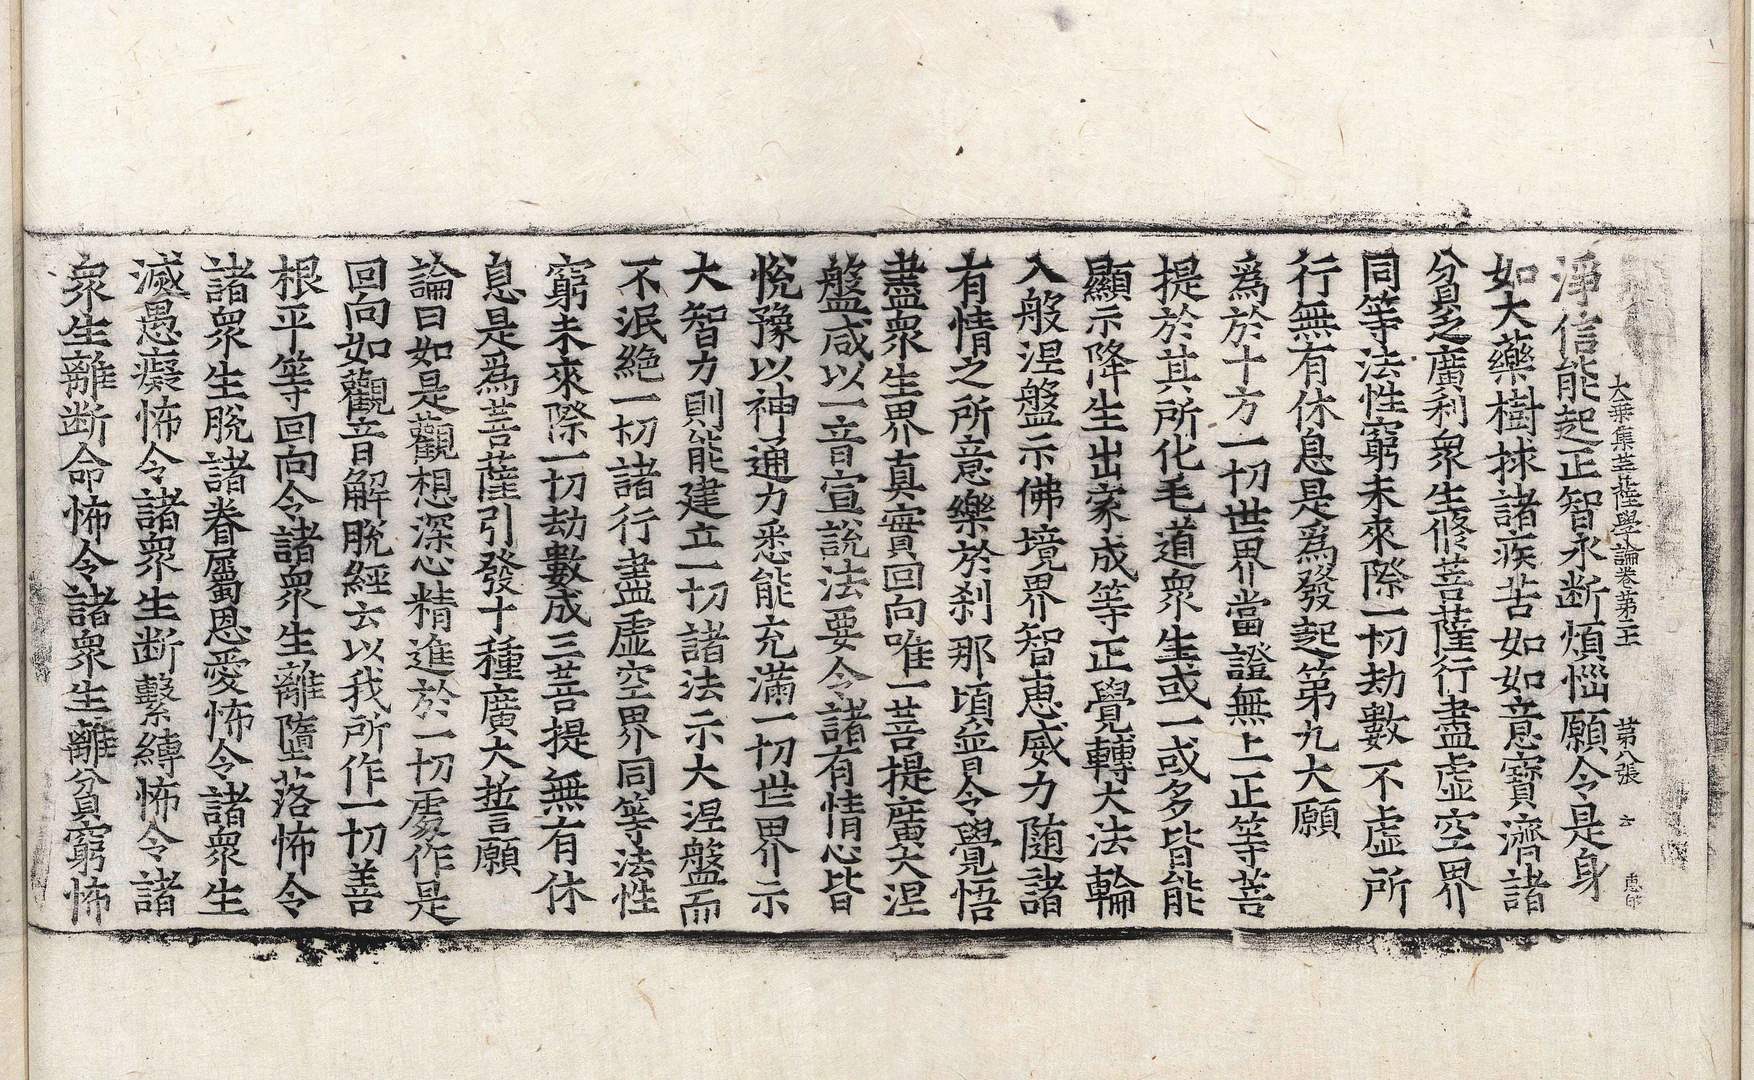 大乗集菩薩學論卷苐三 苐八張 六 惠印
淨信能起正智永断煩惱願令是身
如大藥樹捄諸疾苦如如意寶濟諸
貧乏廣利衆生修菩薩行盡虛空界
同等法性窮未來際一切劫數不虛所
行無有休息是爲發起第九大願
爲於十方一切世界當證無上正等菩
提於其所化毛道衆生或一或多皆能
顯示降生出家成等正覺轉大法輪
入般涅盤示佛境界智惠威力随諸
有情之所意樂於刹那頃並令覺悟
盡衆生界真實回向唯一菩提廣大涅
盤咸以一音宣說法要令諸有情心皆
悅豫以神通力悉能充滿一切世界示
大智力則能建立一切諸法示大涅盤而
不泯絶一切諸行盡虛空界同等法性
窮未來際一切劫數成三菩提無有休
息是爲菩薩引發十種廣大誓願
論曰如是觀想深心精進於一切處作是
回向如觀音解脫經云以我所作一切善
根平等回向令諸衆生離墮落怖令
諸衆生脫諸眷屬恩愛怖令諸衆生
滅愚癡怖令諸衆生断繫縛怖令諸
衆生離断命怖令諸衆生離貧窮怖